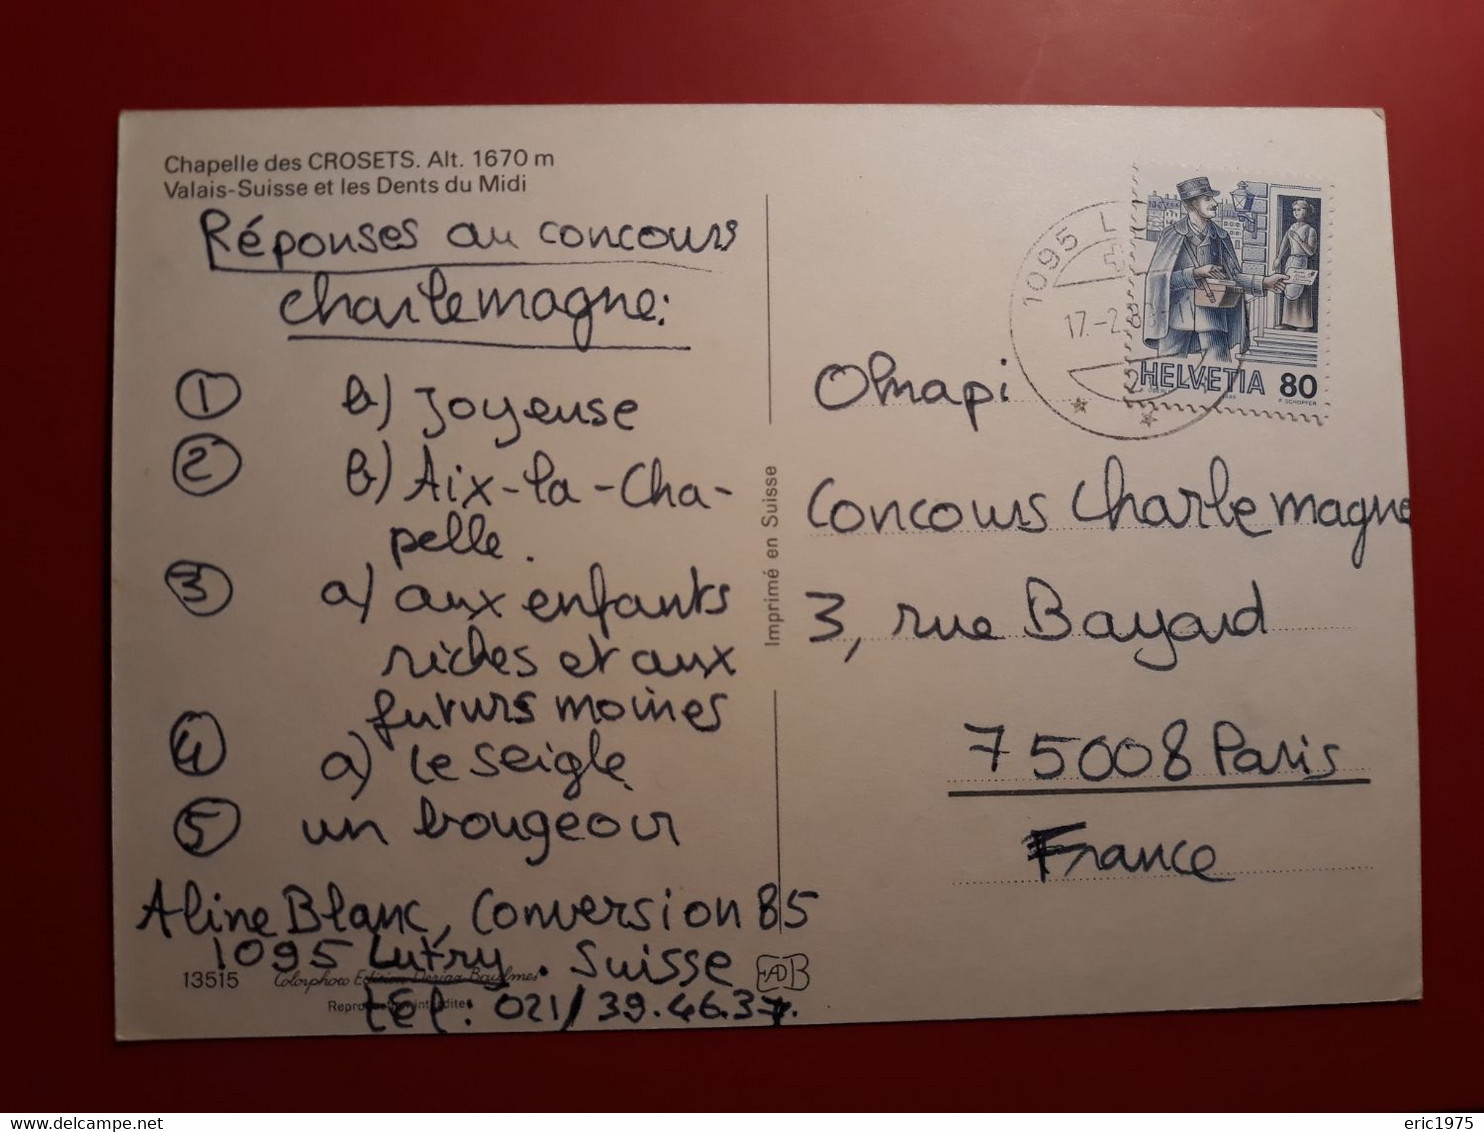 Chapelle des CROSETS. Alt. 1670 m
Valais-Suisse et les Dents du Midi
Réponses au concours
charlemagne:
1 b) Joyeuse
2 b) Aix-la-Cha-
pelle.
3 a) aux enfants
riches et aux
futurs moines
4 a) le seigle
5 un bougeoir
Aline Blanc, Conversion 85
1095 Lutry. Suisse
13515
Colorphoto Edition
tél: 021/39.46.37.
Imprimé en Suisse
1095 L
17.-2.8
HELVETIA 80
Okapi
Concours Charlemagne
3, rue Bayard
75008 Paris
France
eric1975